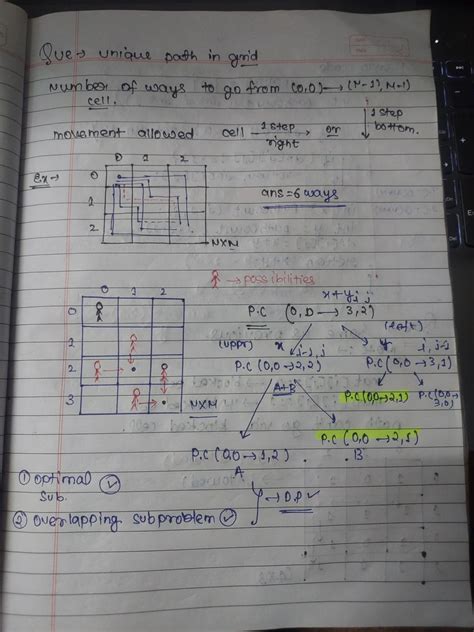 Que → unique path in grid
Number of ways to go from (0,0) → (N-1), N-1)
cell.
movement allowed cell 1 step right or 1 step bottom.
Ex →
0 1 2
0
1
2
NXM
ans = 6 ways
→ possibilities
0 1 2
0
1
2
3
NXM
x+y i,j
P.C (0,0 → 3,2)
(uppr) x i-1,j
y i,j-1 (left)
P.C (0,0 → 2,2)
P.C (0,0 → 3,1)
A+B
P.C (0,0 → 2,1)
P.C (0,0 → 3,0)
P.C (0,0 → 2,1)
P.C (0,0 → 1,2)
A
B
① optimal
Sub.
② overlapping subproblem
→ D.P